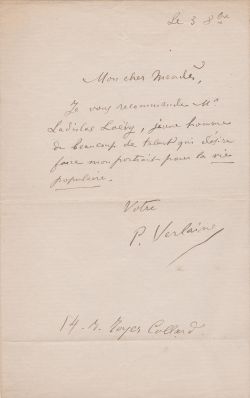 Le 3 8bre
Mon cher Mendès,
Je vous recommande Mr
Ladislas Loévy, jeune homme
de beaucoup de talent qui désire
faire mon portrait pour la vie
populaire.
Votre
P. Verlaine
14. R. Royer Collard.